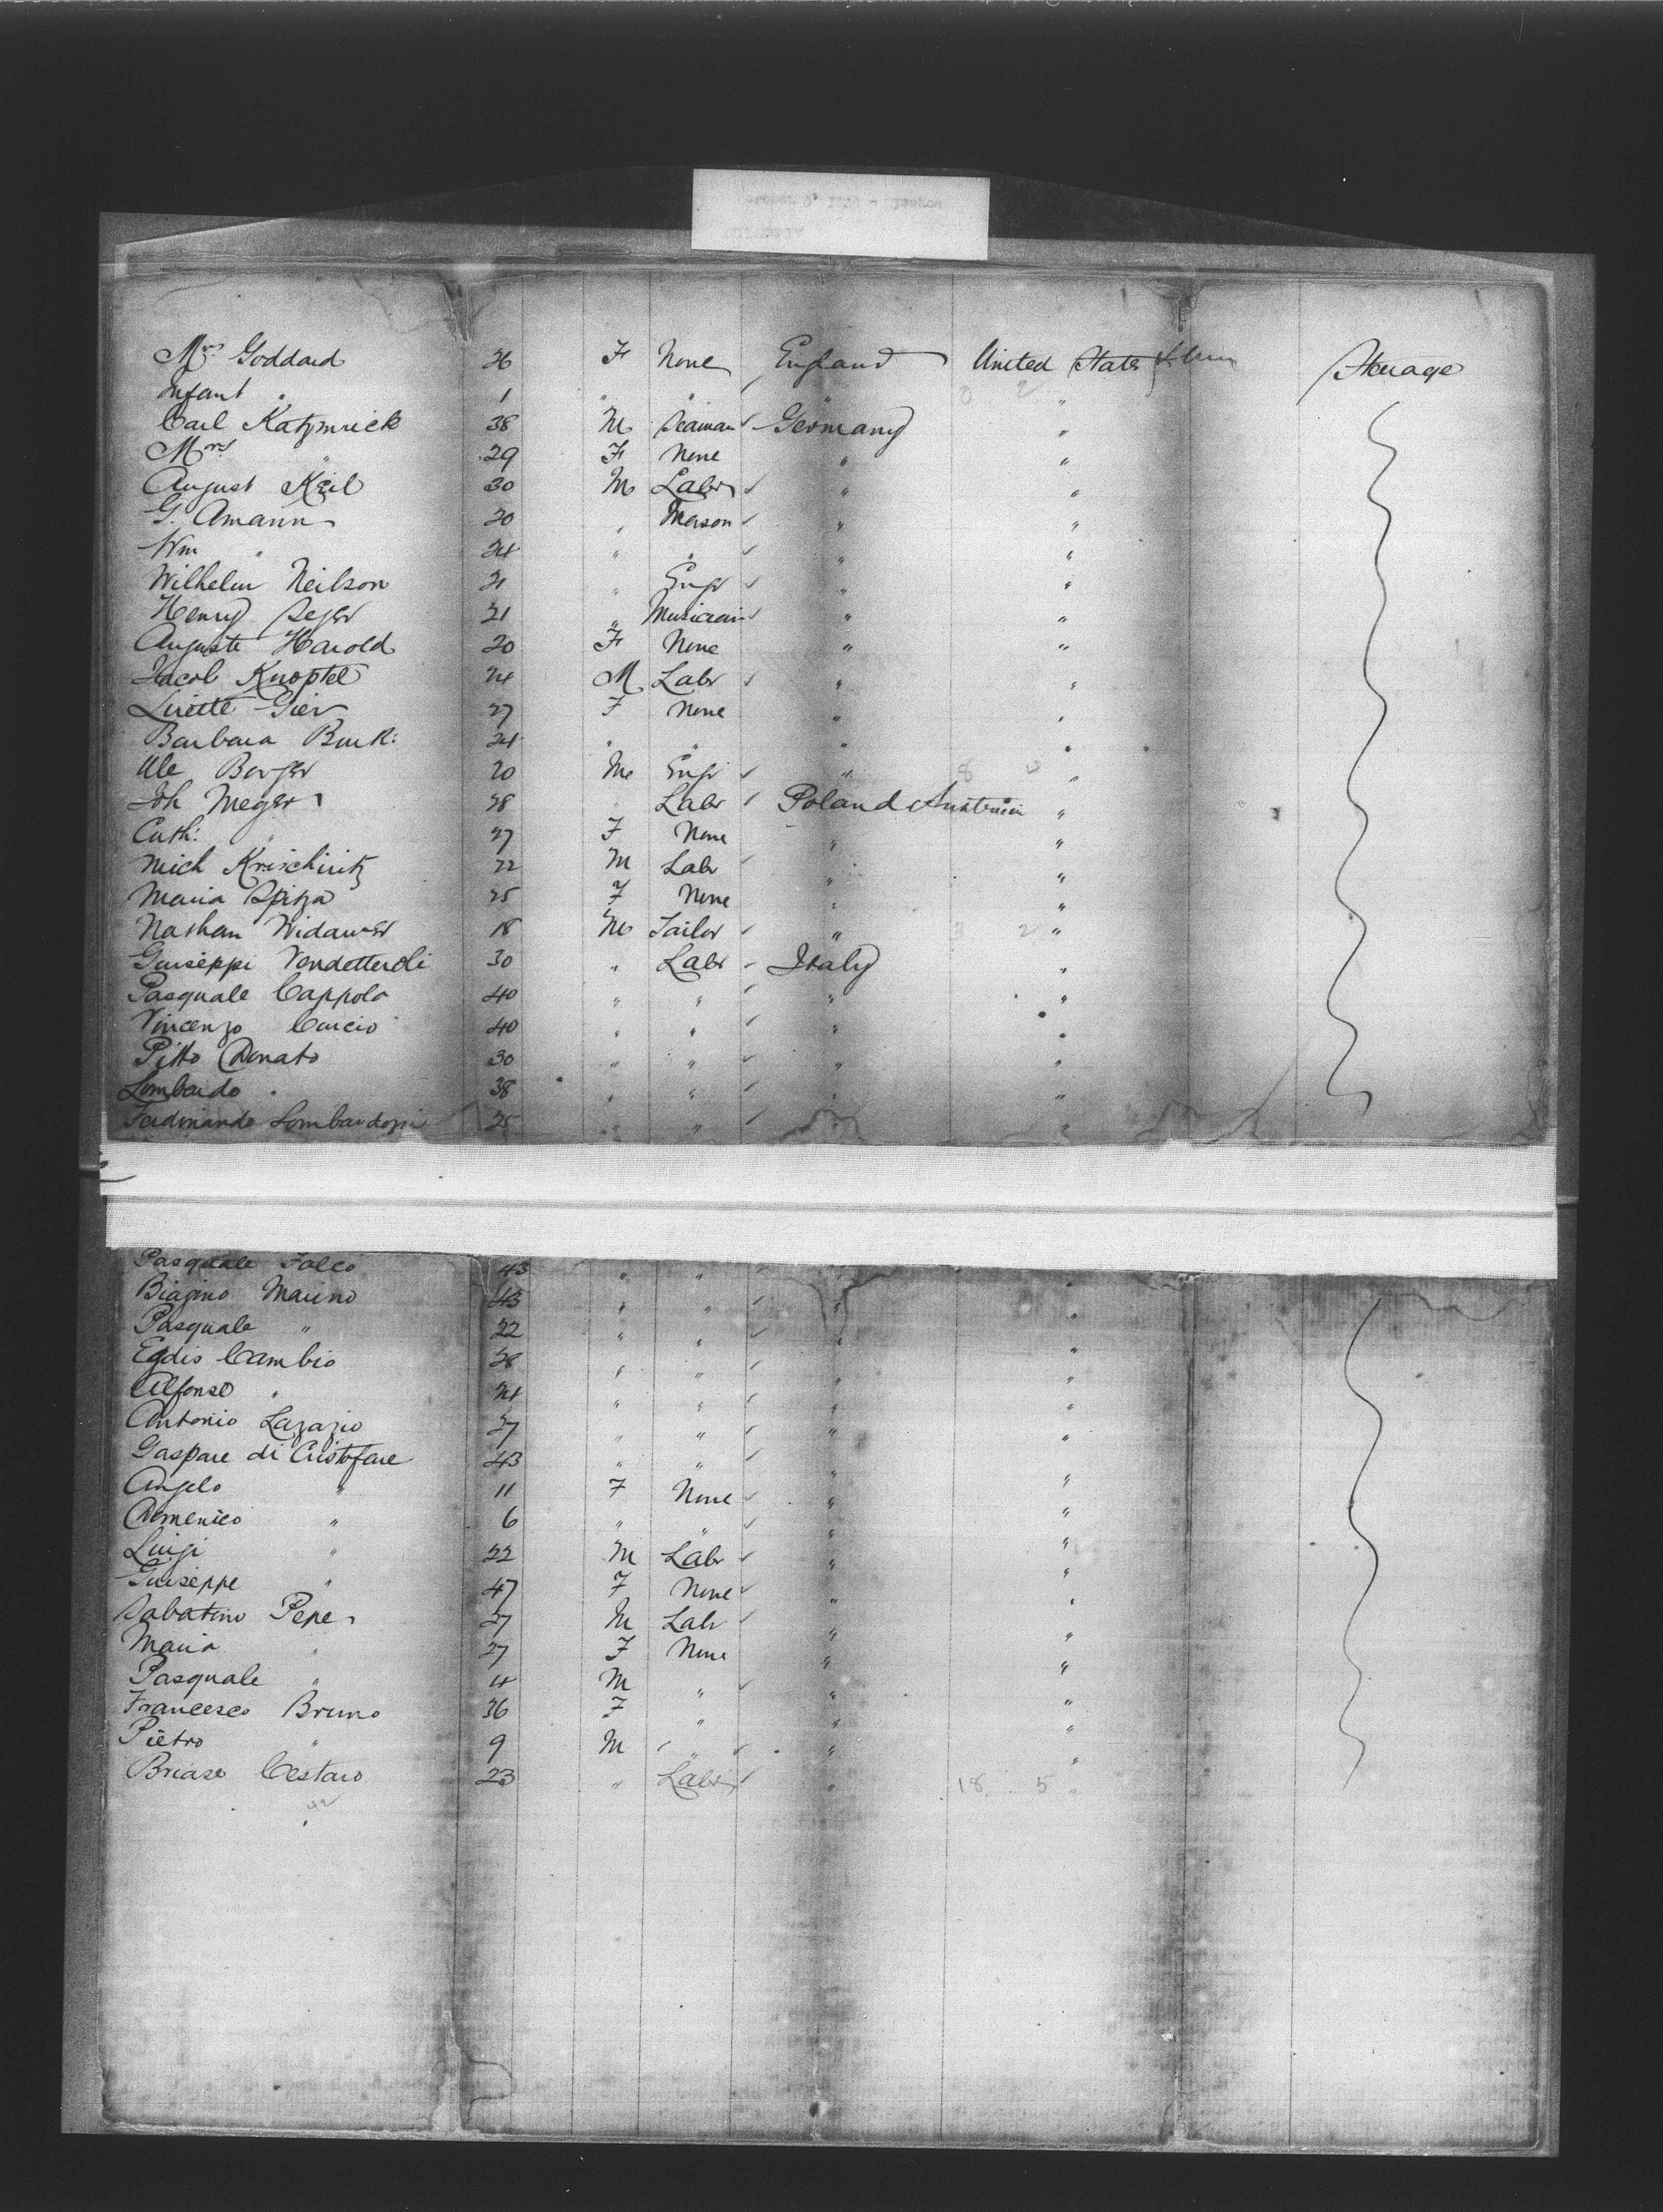 Mrs Goddard 26 F None England United States Steerage
Infant " 1 " " "
Carl Katzmrick 38 M Seaman Germany "
Mrs " 29 F None " "
August Keil 30 M Labr " "
G. Amann 20 " Mason " "
Wm " 24 " " " "
Wilhelm Neilson 21 " Engr " "
Henry Seger 21 " Musician " "
Auguste Harold 20 F None " "
Jacob Knoptel 24 M Labr " "
Lisette Gier 27 F None " "
Barbara Burk: 24 " " " "
Ule Berger 20 M Engr " "
Joh Meger 28 Labr Poland Austria "
Cath: " 27 F None " "
Mich Krischiitz 22 M Labr " "
Maria Spitza 25 F None " "
Nathan Widawer 18 M Tailor " 3 2 "
Guiseppi Vendetteroli 30 " Labr Italy "
Pasquale Cappolo 40 " " " "
Vincenzo Curcio 40 " " " "
Pitto Donato 30 " " " "
Lombardo 38 " " " "
Ferdinando Lombardozzi 25 " " " "
Pasquale Falco 43 " " "
Biagino Marino 43 " " " "
Pasquale " 22 " " " "
Egdio Cambio 28 " " " "
Alfonso " 24 " " " "
Antonio Lazazio 27 " " " "
Gaspare di Cristofare 43 " " " "
Angelo " 11 F None " "
Domenico " 6 " " " "
Luigi " 22 M Labr " "
Guiseppe " 47 F None " "
Sabatino Pepe 27 M Labr " "
Maria " 27 F None " "
Pasquale " 4 M " " "
Francesco Bruno 36 F " " "
Pietro " 9 M " " "
Briase Cestaro 23 " Labr " 18 5 "